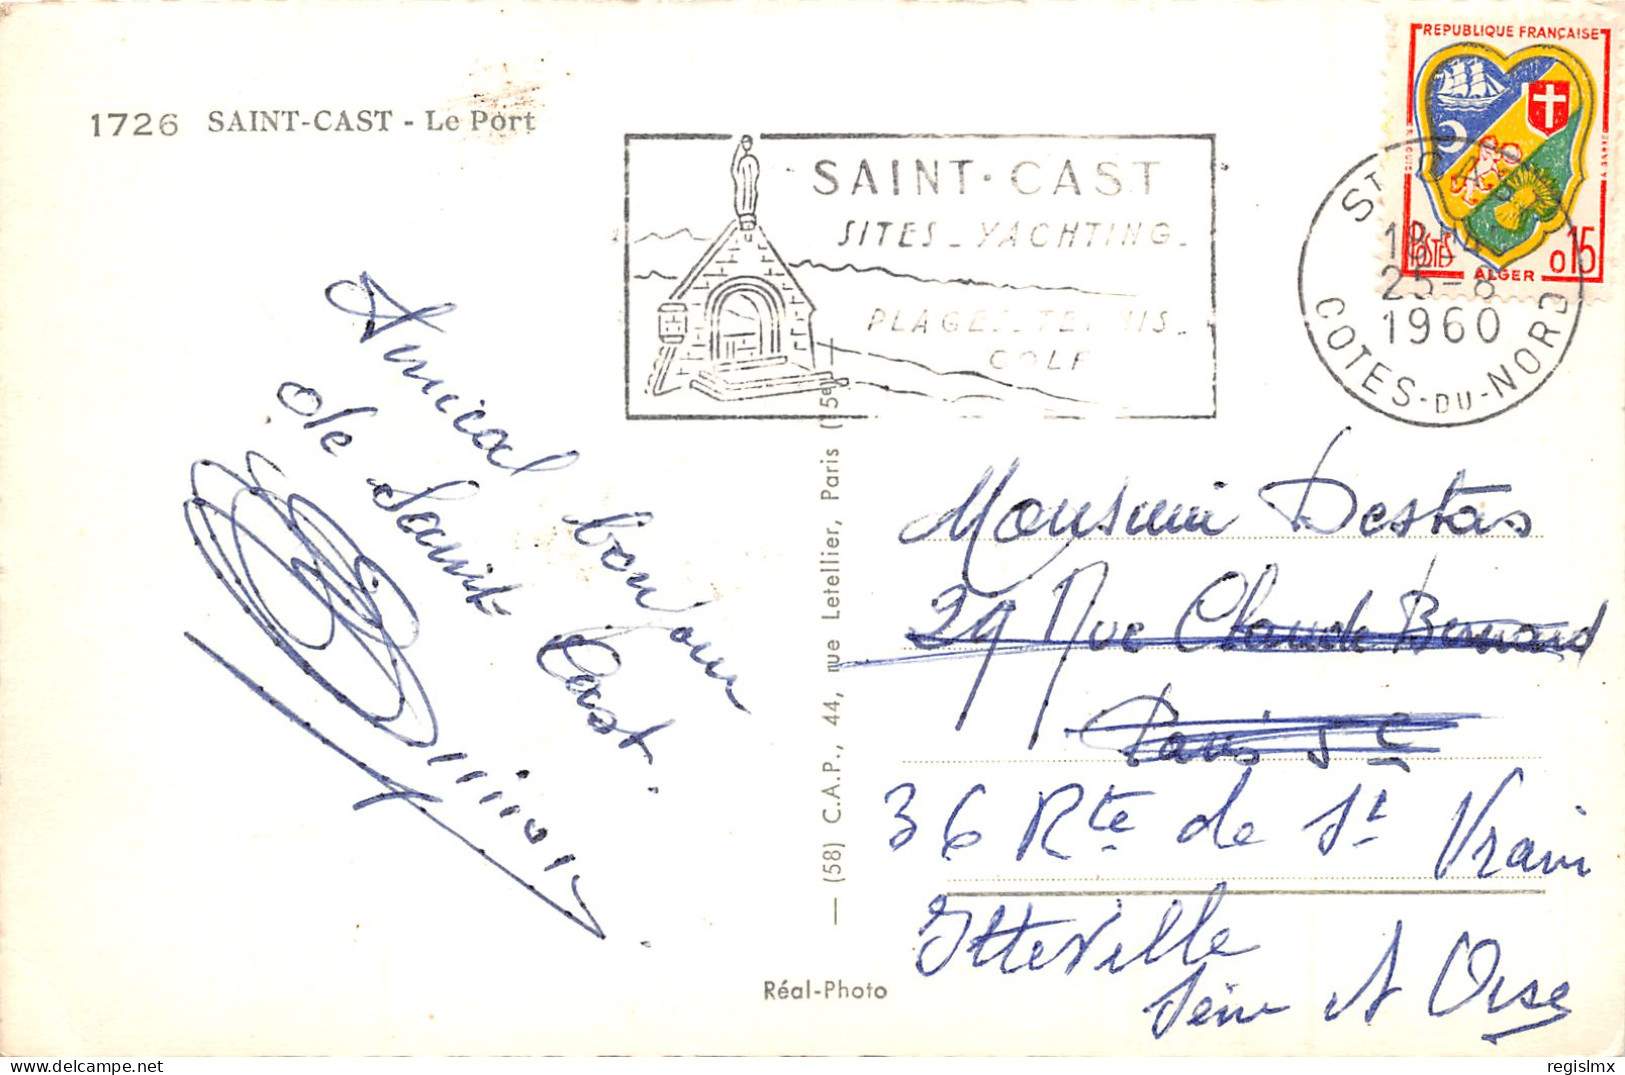 1726 SAINT-CAST - Le Port
SAINT-CAST
SITES - YACHTING -
PLAGES - TENNIS -
GOLF
REPUBLIQUE FRANÇAISE
POSTES
ALGER
0,15
ST CAST
18H
25-8
1960
COTES-DU-NORD
Amical bonjour
de Saint Cast.
Monsieur Destas
29 Rue Claude Bernard
Paris 5e
36 Rte de St Vrain
Itteville
Seine et Oise
— (58) C.A.P., 44, rue Letellier, Paris (15e) —
Réal-Photo
regislmx